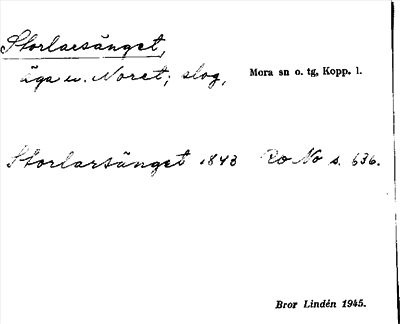 Storlarsänget,
äga u. Noret; slog, Mora sn o. tg, Kopp. l.
Storlarsänget 1843 Ro No s. 636.
Bror Lindén 1945.